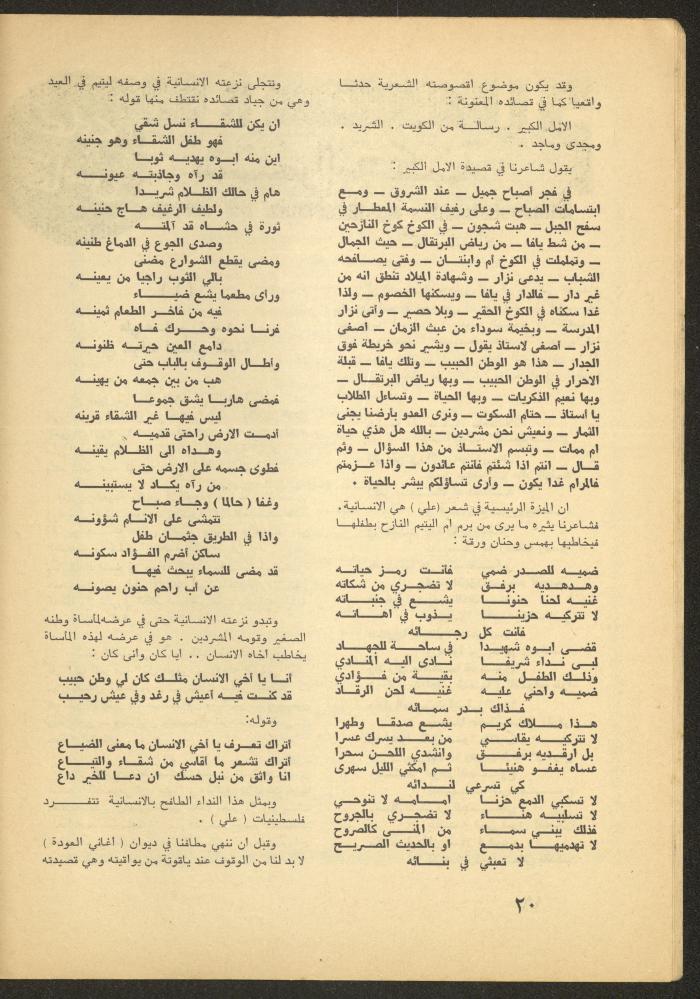 وقد يكون موضوع اقصوصته الشعرية حدثا
واقعيا كما في قصائده المعنونة :
الامل الكبير . رسالة من الكويت . الشريد .
ومجدى وماجد .
يقول شاعرنا في قصيدة الامل الكبير :
في فجر اصباح جميل — عند الشروق — ومع
ابتسامات الصباح — وعلى رفيف النسمة المعطار في
سفح الجبل — هبت شجون — في الكوخ كوخ النازحين
— من شط يافا — من رياض البرتقال — حيث الجمال
— وتململت في الكوخ أم وابنتان — وفتى يصافحه
الشباب — يدعى نزار — وشهادة الميلاد تنطق انه من
غير دار — فالدار في يافا — ويسكنها الخصوم — ولذا
غدا سكناه في الكوخ الحقير — وبلا حصير — وأتى نزار
المدرسة — وبخيمة سوداء من عبث الزمان — اصغى
نزار — اصغى لاستاذ يقول — ويشير نحو خريطة فوق
الجدار — هذا هو الوطن الحبيب — وتلك يافا — قبلة
الاحرار في الوطن الحبيب — وبها رياض البرتقال —
وبها نعيم الذكريات — وبها الحياة — وتساءل الطلاب
يا أستاذ — حتام السكوت — ونرى العدو بأرضنا يجنى
الثمار — ونعيش نحن مشردين — بالله هل هذي حياة
ام ممات — وتبسم الاستاذ من هذا السؤال — وثم
قال — انتم اذا شئتم فانتم عائدون — واذا عزمتم
فالمرام غدا يكون — وأرى تساؤلكم يبشر بالحياة .
ان الميزة الرئيسية في شعر (علي) هي الانسانية.
فشاعرنا يثيره ما يرى من برم ام اليتيم النازح بطفلها
فيخاطبها بهمس وحنان ورقة :
ضميه للصدر ضمي فانت رمز حياته
وهدهديه برفق لا تضجري من شكاته
غنيه لحنا حنونا يشع في جنباته
لا تتركيه حزينا يذوب في اهاته
فانت كل رجائه
قضى ابوه شهيدا في ساحة للجهاد
لبى نداء شريفا نادى اليه المنادي
وذلك الطفل منه بقية من فؤادي
ضميه واحني عليه غنيه لحن الرقاد
فذاك بدر سمائه
هذا ملاك كريم يشع صدقا وطهرا
لا تتركيه يقاسي من بعد يسرك عسرا
بل ارقديه برفق وانشدي اللحن سحرا
عساه يغفو هنيئا ثم امكثي الليل سهرى
كي تسرعي لندائه
لا تسكبي الدمع حزنا امامه لا تنوحي
لا تسلبيه هناء لا تضجري بالجروح
فذلك يبني سماء من المنى كالصروح
لا تهدميها بدمع او بالحديث الصريح
لا تعبثي في بنائه
وتتجلى نزعته الانسانية في وصفه ليتيم في العيد
وهي من جياد قصائده نقتطف منها قوله :
ان يكن للشقاء نسل شقي
فهو طفل الشقاء وهو جنينه
اين منه ابوه يهديه ثوبا
قد رآه وجاذبته عيونه
هام في حالك الظلام شريدا
ولطيف الرغيف هاج حنينه
ثورة في حشاه قد آلمته
وصدى الجوع في الدماغ طنينه
ومضى يقطع الشوارع مضنى
بالي الثوب راجيا من يعينه
ورأى مطعما يشع ضياء
فيه من فاخر الطعام ثمينه
فرنا نحوه وحرك فاه
دامع العين حيرته ظنونه
وأطال الوقوف بالباب حتى
هب من بين جمعه من يهينه
فمضى هاربا يشق جموعا
ليس فيها غير الشقاء قرينه
أدمت الارض راحتي قدميه
وهداه الى الظلام يقينه
فطوى جسمه على الارض حتى
من رآه يكاد لا يستبينه
وغفا ( حالما ) وجاء صباح
تتمشى على الانام شؤونه
واذا في الطريق جثمان طفل
ساكن أضرم الفؤاد سكونه
قد مضى للسماء يبحث فيها
عن أب راحم حنون يصونه
وتبدو نزعته الانسانية حتى في عرضه لمأساة وطنه
الصغير وقومه المشردين . هو في عرضه لهذه المأساة
يخاطب أخاه الانسان .. أيا كان وأنى كان :
أنا يا أخي الانسان مثلك كان لي وطن حبيب
قد كنت فيه أعيش في رغد وفي عيش رحيب
وقوله:
أتراك تعرف يا أخي الانسان ما معنى الضياع
أتراك تشعر ما أقاسي من شقاء والتياع
انا واثق من نبل حسك ان دعا للخير داع
وبمثل هذا النداء الطافح بالانسانية تتفرد
فلسطينيات ( علي ) .
وقبل ان ننهي مطافنا في ديوان ( أغاني العودة )
لا بد لنا من الوقوف عند ياقوتة من يواقيته وهي قصيدته
٢٠